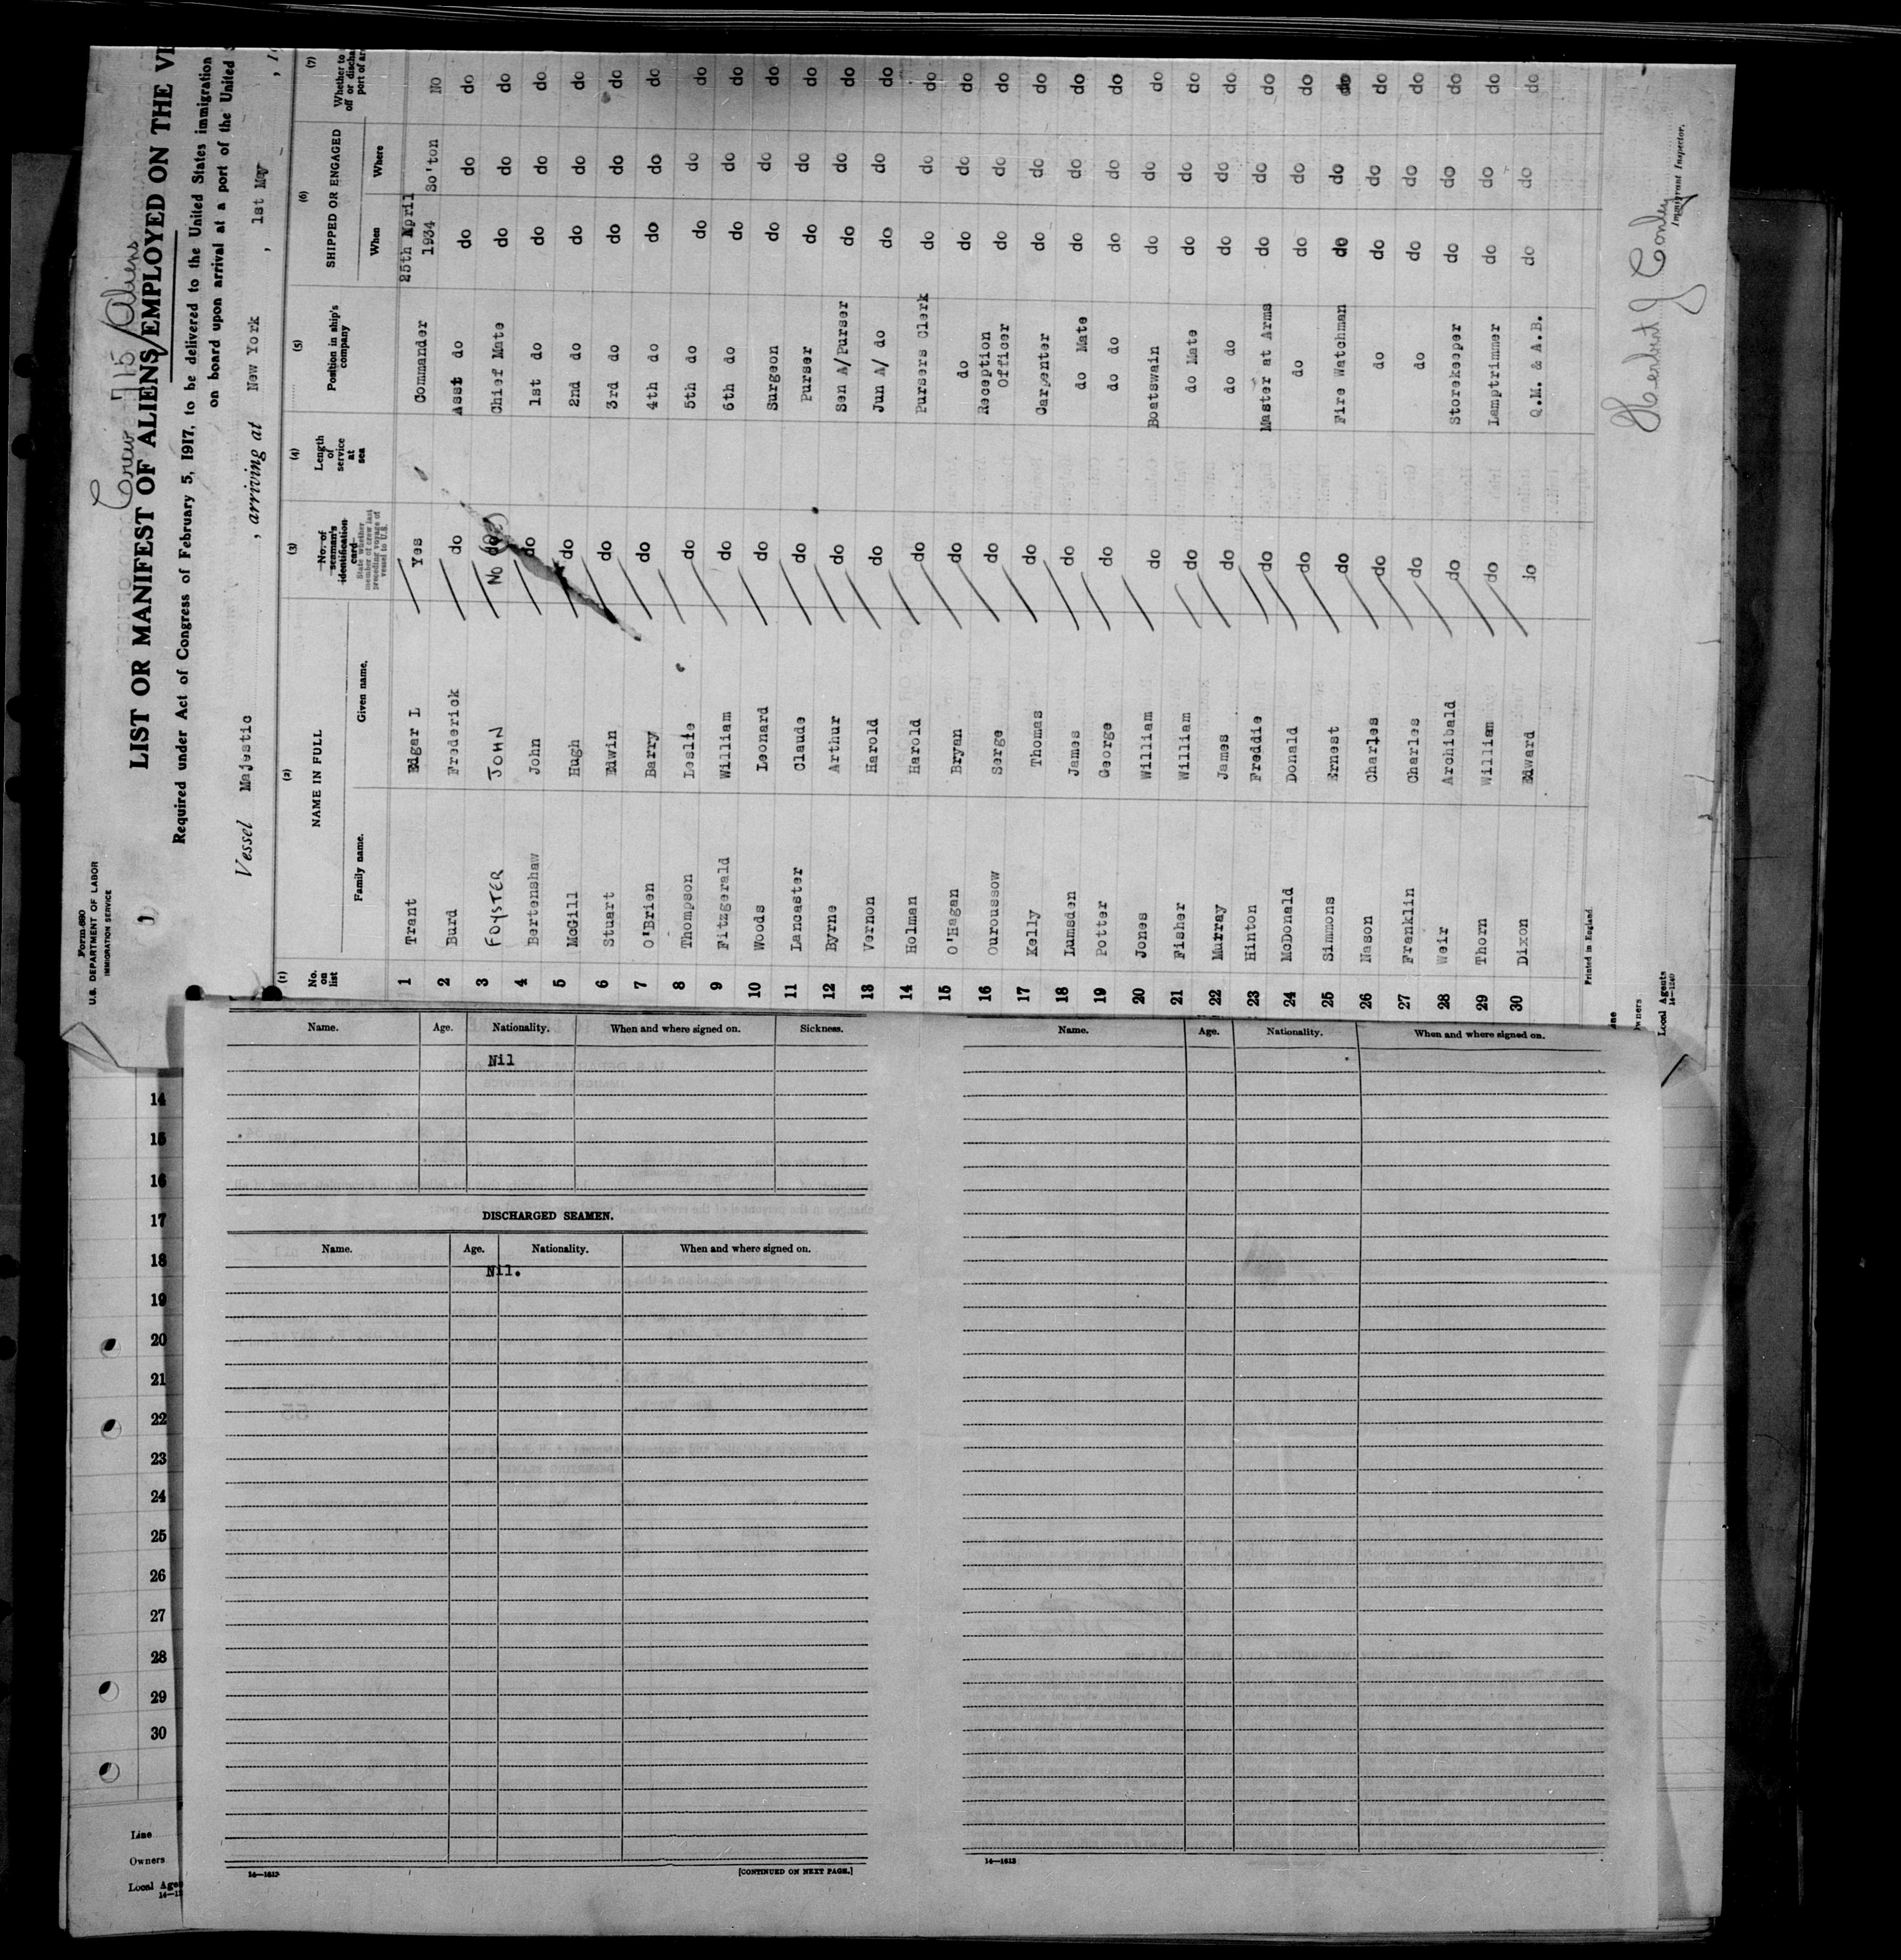 Form 680
U.S. DEPARTMENT OF LABOR
IMMIGRATION SERVICE
Crew 715 / Aliens
LIST OR MANIFEST OF ALIENS EMPLOYED ON THE
Required under Act of Congress of February 5, 1917, to be delivered to the United States immigration
on board upon arrival at a port of the United
Vessel Majestic , arriving at New York , 1st May , 19
(1) (2) (3) (4) (5) (6) (7)
No. on list NAME IN FULL No. of seaman's identification card Length of service at sea Position in ship's company SHIPPED OR ENGAGED Whether to
off or discha
port of ar
State whether member of crew last preceding voyage of vessel to U.S.
Family name. Given name. When Where
1 Trant Edgar L Yes Commander 25th April 1934 So'ton No
2 Burd Frederick do Asst do do do do
3 FOYSTER JOHN No do (YES) Chief Mate do do do
4 Bertenshaw John do 1st do do do do
5 McGill Hugh do 2nd do do do do
6 Stuart Edwin do 3rd do do do do
7 O'Brien Barry do 4th do do do do
8 Thompson Leslie do 5th do do do do
9 Fitzgerald William do 6th do do do do
10 Woods Leonard do Surgeon do do do
11 Lancaster Claude do Purser do do do
12 Byrne Arthur do Sen A/Purser do do do
13 Vernon Harold do Jun A/ do do do do
14 Holman Harold do Pursers Clerk do do do
15 O'Hagan Bryan do do do do do
16 Ouroussow Serge do Reception Officer do do do
17 Kelly Thomas do Carpenter do do do
18 Lumsden James do do Mate do do do
19 Potter George do do do do do do
20 Jones William do Boatswain do do do
21 Fisher William do do Mate do do do
22 Murray James do do do do do do
23 Hinton Freddie do Master at Arms do do do
24 McDonald Donald do do do do do
25 Simmons Ernest do Fire Watchman do do do
26 Nason Charles do do do do do
27 Franklin Charles do do do do do
28 Weir Archibald do Storekeeper do do do
29 Thorn William do Lamptrimmer do do do
30 Dixon Edward do Q.M. & A.B. do do do
Printed in England.
Line
Owners
Local Agents
14—1240
Herbert J Conley
Immigrant Inspector.
Name. Age. Nationality. When and where signed on. Sickness.
Nil
DISCHARGED SEAMEN.
Name. Age. Nationality. When and where signed on.
Nil.
14—1613
[CONTINUED ON NEXT PAGE.]
Name. Age. Nationality. When and where signed on.
14—1613
14
15
16
17
18
19
20
21
22
23
24
25
26
27
28
29
30
Line
Owners
Local Age
14—12